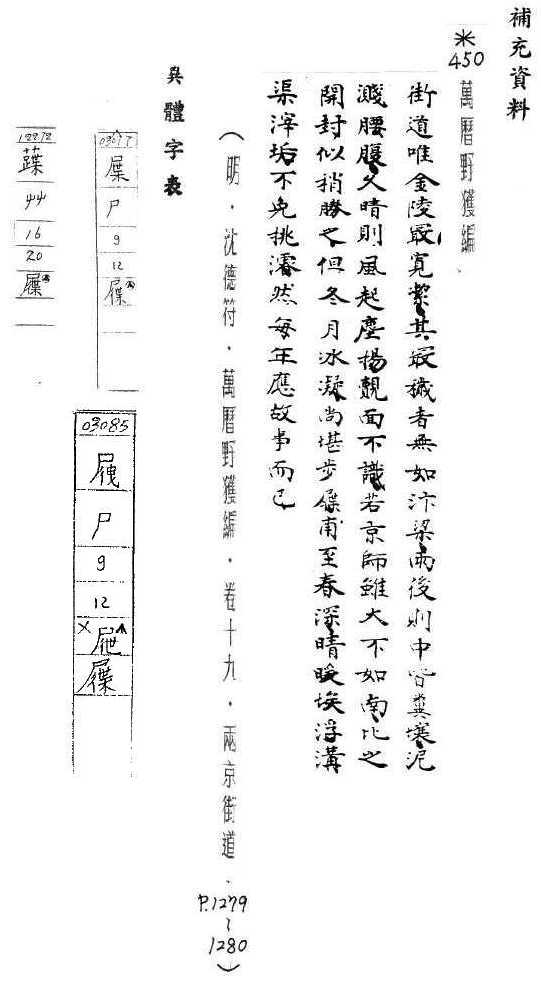 補充資料
*450
萬曆野獲編
街道唯金陵最寬潔其最穢者無如汴梁雨後則中皆糞壤泥
濺腰腹久晴則風起塵揚覿面不識若京師雖大不如南北之
開封似稍勝之但冬月冰凝尚堪步屧甫至春深晴暖埃浮溝
渠滓垢不免挑濬然每年應故事而已
（明．沈德符．萬曆野獲編．卷十九．兩京街道．P.1279~1280）
異體字表
屟
尸
9
12
屧
12272
蹀
艸
16
20
屧
03085
尸
9
12
×
屧